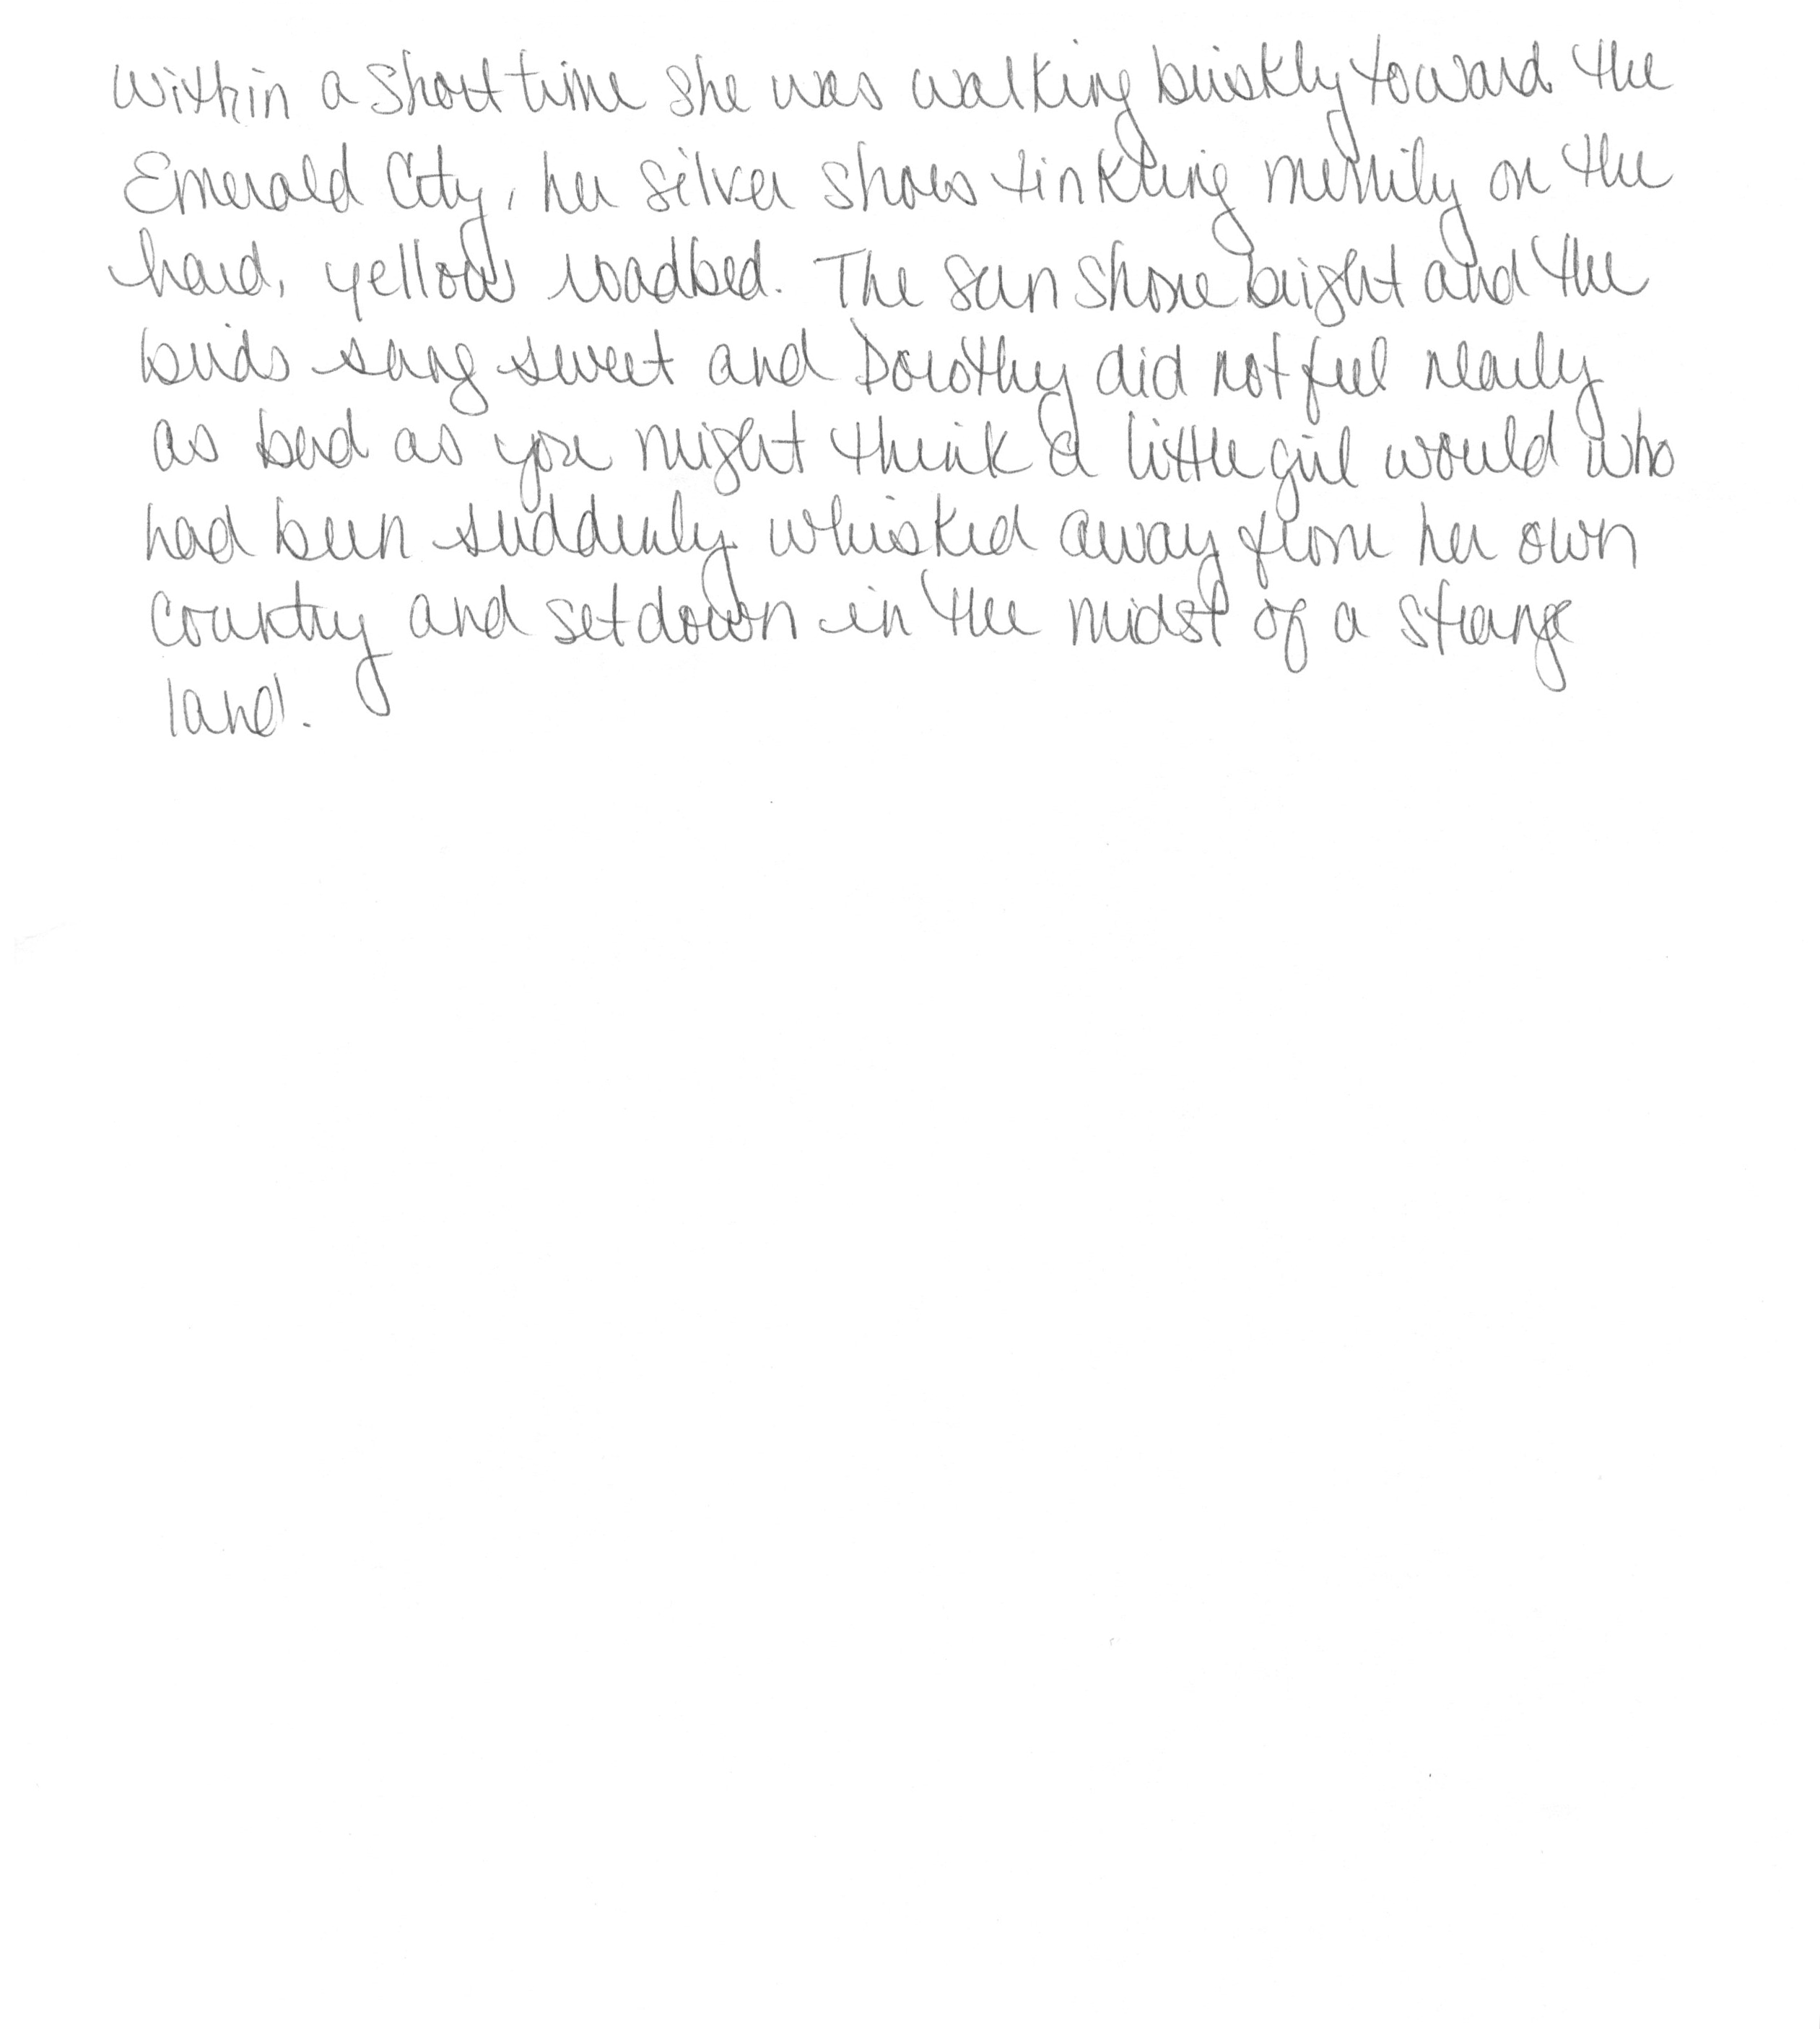 Within a short time she was walking briskly toward the
Emerald City, her silver shoes tinkling merrily on the
hard, yellow roadbed. The sun shone bright and the
birds sang sweet and Dorothy did not feel nearly
as bad as you might think a little girl would who
had been suddenly whisked away from her own
country and set down in the midst of a strange
land.